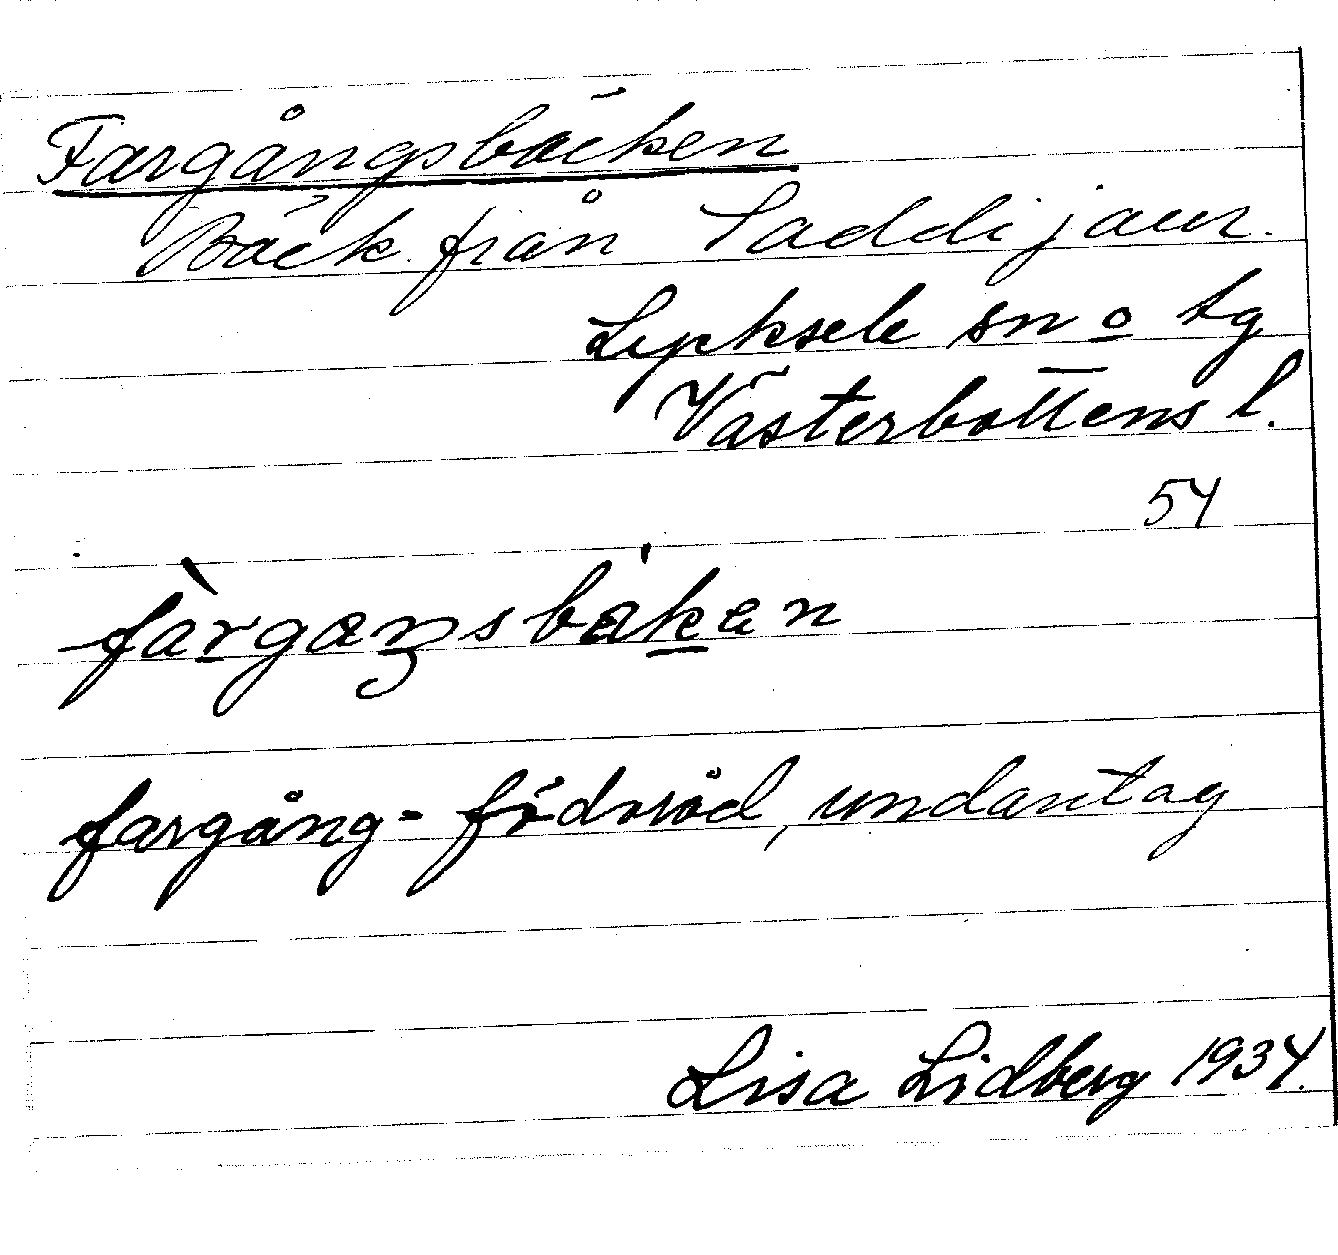 Fargångsbäcken
Bäck från Saddijaur.
Lycksele sn o tg
Västerbottens l.
54
fàrgaŋsbäkan
fargång - födoråd, undantag
Lisa Lidberg 1934.